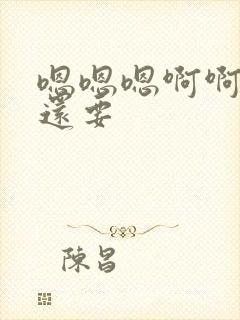 嗯嗯嗯啊啊
還要
陳昌